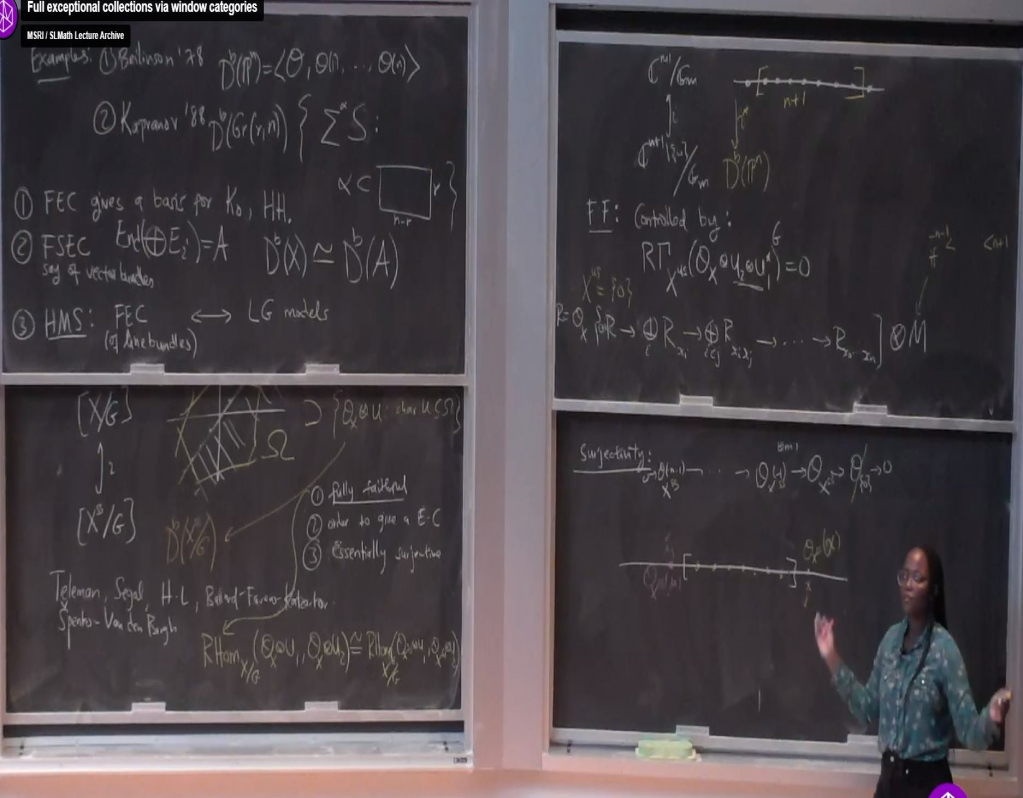 Full exceptional collections via window categories
MSRI / SLMath Lecture Archive
Examples: ① Beilinson '78 D^b(P^n) = ⟨O, O(1), ..., O(n)⟩
② Kapranov '88 D^b(Gr(r,n)) { Σ^α S :
α ⊂ r }
n-r
① FEC gives a basis for K₀, HH.
② FSEC End(⊕E_i) = A D^b(X) ≃ D^b(A)
say of vector bundles
③ HMS: FEC ⟷ LG models
(of line bundles)
[X/G]
⊃ { O_X⊗U : char U ⊂ Ω }
Ω
[X^ss/G]
① fully faithful
D^b(X^ss/G)
② order to give a E-C
③ Essentially surjective
Teleman, Segal, H-L, Ballard-Favero-Katzarkov
Špenko-Van den Bergh
RHom_{X/G}(O_X⊗U₁, O_X⊗U₂) ≅ RHom
C^{n+1}/G_m
n+1
C^{n+1}\{0}/G_m D^b(P^n)
FF: Controlled by:
RΓ_{X^us}(O_X⊗U₂⊗U₁^*)^G = 0
<n+1
X^us = {0}
R → ⊕_i R_{x_i} → ⊕ R_{x_i x_j} → ... → R_{x_0...x_n}] ⊗ M
Surjectivity:
→ ... → O → O → O → 0